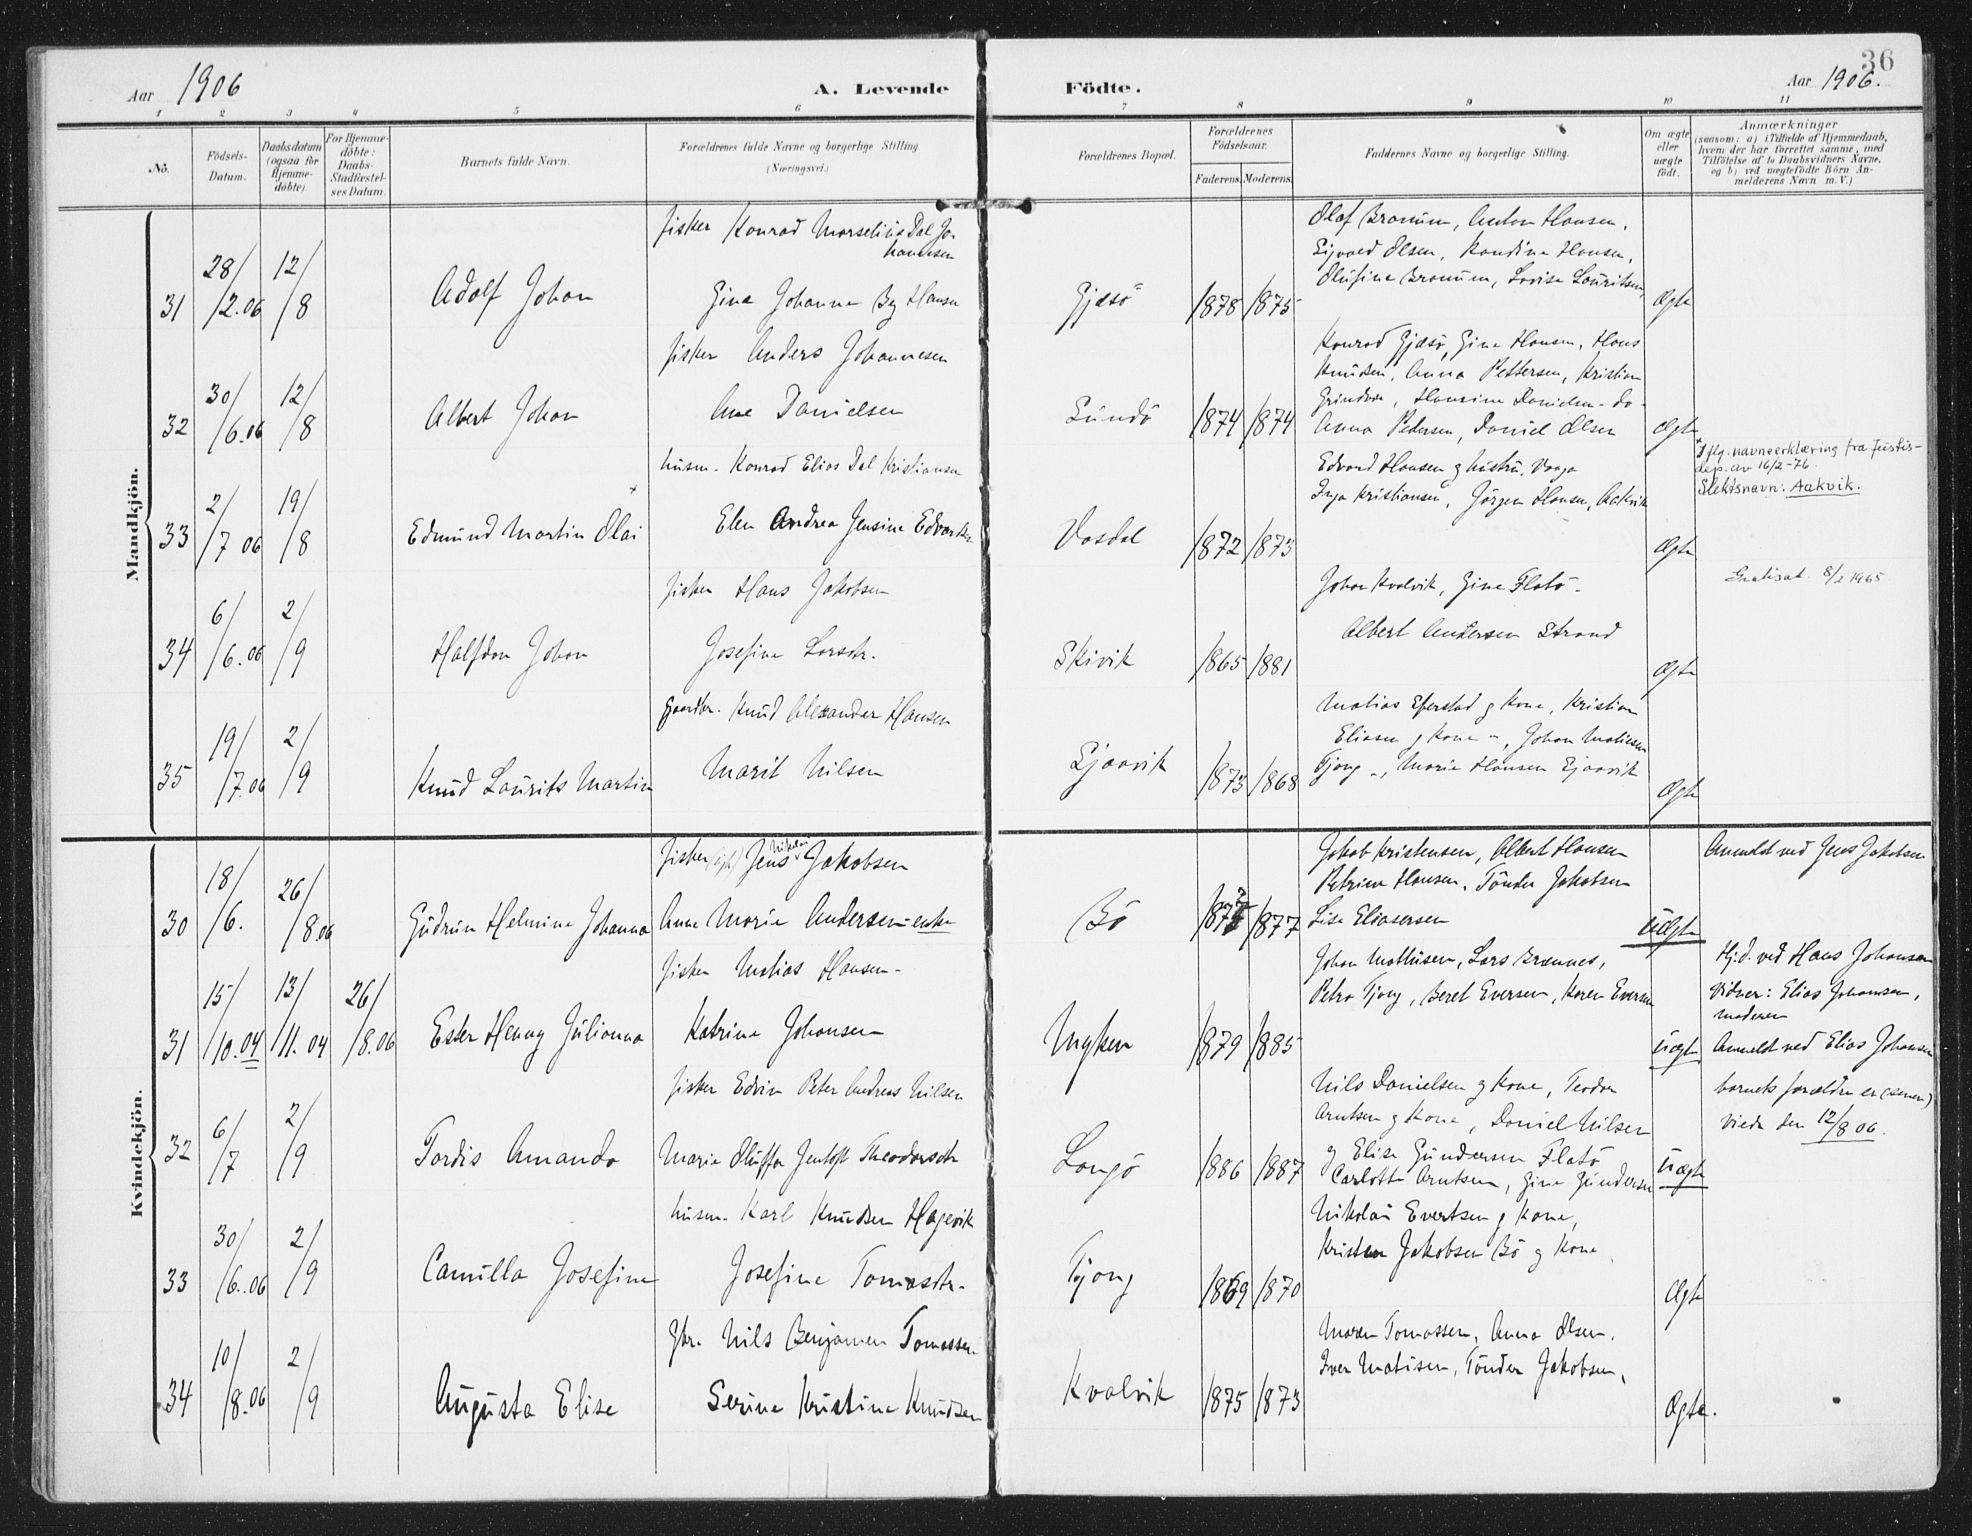 36
Aar 1906 A. Levende Födte. Aar 1906.
1 2 3 4 5 6 7 8 9 10 11
No.
Födsels-
Datum.
Daabsdatum
(ogsaa for
Hjemme-
döbte)
For Hjemme-
döbte:
Daabs-
Stadfæstel-
ses Datum.
Barnets fulde Navn.
Forældrenes fulde Navne og borgerlige Stilling
(Næringsvei.)
Forældrenes Bopæl.
Forældrenes
Födselsaar.
Faderens. Moderens.
Faddernes Navne og borgerlige Stilling.
Om ægte
eller
uægte
födt.
Anmærkninger
(saasom: a) i Tilfælde af Hjemmedaab,
hvem der har forrettet samme, med
Tilföielse af to Daabsvidners Navne,
og b) ved uægtefödte Börn An-
melderens Navn m. V.)
Mandkjön.
31 28/2.06 12/8 Adolf Johan
fisker Konrad Marselius Dal Jo-
hannesen
Gina Johanna By Hansen
Gjæsö 1878 1875
Olaf Bronum, Anton Hansen,
Sigvard Olsen, Kandine Hansen,
Olufine Bronum, Lovise Lauritsen,
Ægte
32 30/6.06 12/8 Albert Johan
fisker Anders Johannesen
Ane Danielsen
Lundö 1874 1874
Konrad Gjæsö, Gine Hansen, Hans
Knudsen, Anna Pettersen, Kristian
Hansine Danielsen - do -
Anna Pedersen, Daniel Olsen
Ægte
33 2/7 06 19/8 Edmund Martin Olai x
husm. Konrad Elias Dal Kristiansen
Elen Andrea Jensine Edvardsen
Vasdal 1872 1873
Edvard Hansen g hustru, Vaaga
Inga Kristiansen, Jörgen Hansen, Aakvik
Ægte
x Iflg. navneerklæring fra Justis-
dep. av 16/2-76.
Slektsnavn: Aakvik.
34 6/6.06 2/9 Halfdan Johan
fisker Hans Jakobsen
Josefine Larsdtr.
Skivik 1865 1881
Johan Kvalvik, Gine Flatö -
Albert Andersen Strand
Ægte
Gratisat. 8/2 1965
35 19/7.06 2/9 Knud Laurits Martin
Gaardbr. Knud Alexander Hansen
Marit Nilsen
Gjaavik 1873 1868
Matias Eferstad g Kone, Kristian
Eliasen g Kone -, Johan Matisen
Tjong -, Marie Hansen Gjaavik
Ægte
Kvindekjön.
30 18/6. 26/8.06 Gudrun Helmine Johanna
fisker Jens Nikolai Jakobsen
Anne Marie Andersen - enke
Bö 1877
Jakob Kristensen, Albert Hansen
Petrine Hansen, Tönder Jakobsen
Lise Eliasersen
Uægte
Anmeldt ved Jens Jakobsen
31 15/10.04 13/11.04 26/8.06 Ester Henny Julianna
fisker Matias Hansen -
Katrine Johansen
Myken 1879 1885
Johan Mathisen, Lars Brennes,
Petra Tjong, Beret Eversen, Karen Eversen
Uægte
Hj.d. ved Hans Johansen
Vidner: Elias Johansen,
moderen
Anmeldt ved Elias Johansen
barnets forældre er (senere)
viede den 12/8 06.
32 6/7 2/9 Tordis Amanda
fisker Edvin Peter Andreas Nilsen
Marie Oluffa Jentoft Theodorsdtr
Langö 1886 1887
Nils Danielsen g Kone, Teodor
Arntsen g Kone, Daniel Nilsen
g Elise Gundersen Flatö
Carlotte Arntsen, Gine Gundersen
Uægte
33 30/6.06 2/9 Camilla Josefine
husm. Karl Knudsen Hagevik
Josefine Tomasdtr.
Tjong 1869 1870
Nikolai Evertsen g Kone,
Kristen Jakobsen Bö g Kone
Ægte
34 10/8.06 2/9 Augusta Elise
Gbr. Nils Benjamin Tomassen
Serine Kristine Knudsen
Kvalvik 1875 1873
Maren Tomassen, Anna Olsen,
Iver Matisen, Tönder Jakobsen,
Ægte.